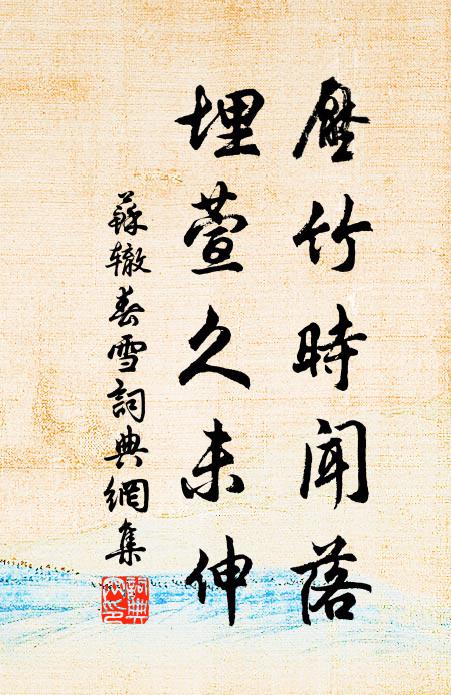 壓竹時聞落
埋萱久未伸
蘇轍春雪詞典網集